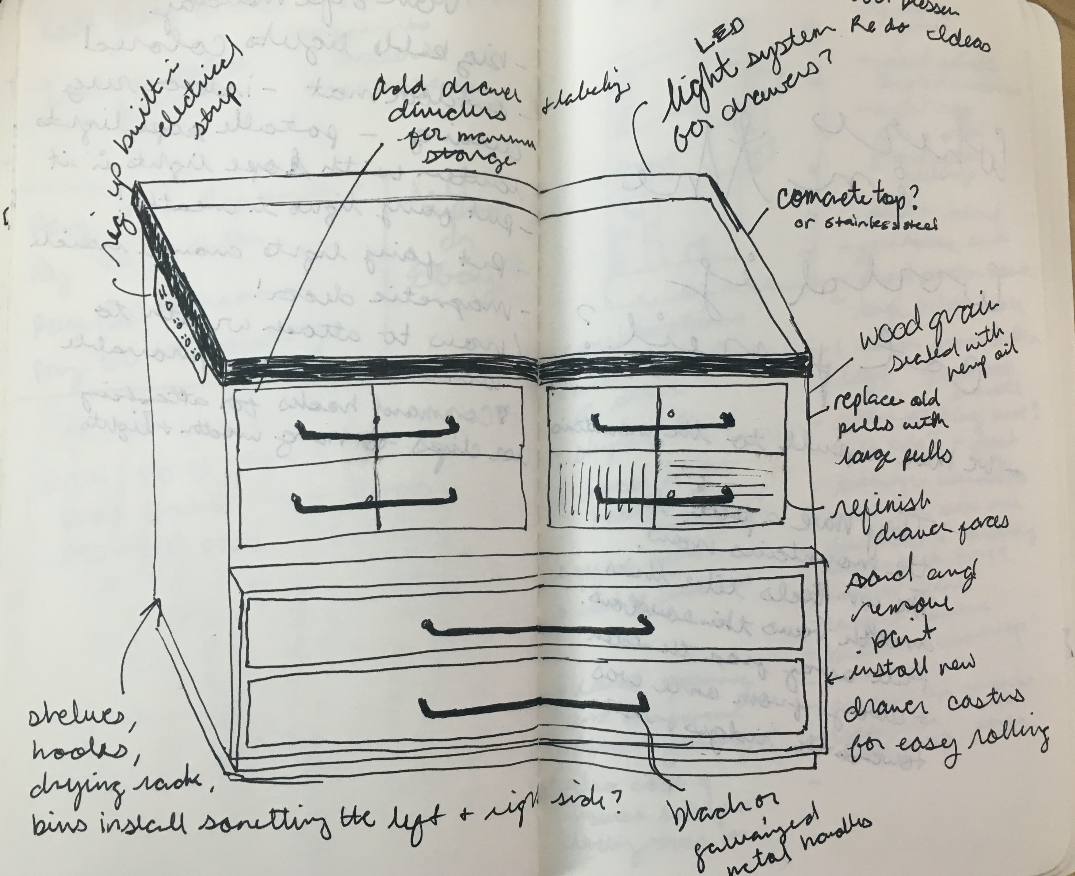 Re do Ideas
LED
light system
for drawers?
rig up built in
electrical
strip
Add drawer
dividers
for maximum
storage
+ labeling
comcrete top?
or stainless steel
wood grain
sealed with
hemp oil
replace old
pulls with
large pulls
refinish
drawer faces
sand and
remove
paint
install new
drawer casters
for easy rolling
shelves,
hooks,
drying rack,
bins install something the left + right side?
black or
galvanized
metal handles